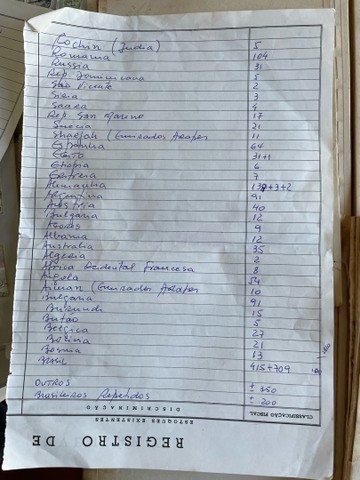 Cochin (India) 5
Romania 104
Russia 31
Rep. Dominicana 5
São Vicente 2
Síria 3
Saara 4
Rep. San Marino 17
Suécia 21
Sharjah (Emirados Arabes 11
Espanha 64
Egito 31+9
Etiopia 6
Eritreia 7
Alemanha +3+2
Argentina 91
Austria 40
Bulgaria 12
Açores 9
Albania 12
Australia 35
Algeria 2
Africa Ocidental Francesa 8
Angola 54
Ajman (Emirados Arabes 10
Bulgaria 91
Burundi 15
Butão 5
Belgica 27
Bolivia 21
Bosnia 13
BRASIL 415+709
OUTROS ± 350
Brasileiros Repetidos ± 200
CLASSIFICAÇÃO FISCAL
DISCRIMINAÇÃO
ESTOQUES EXISTENTES
REGISTRO DE